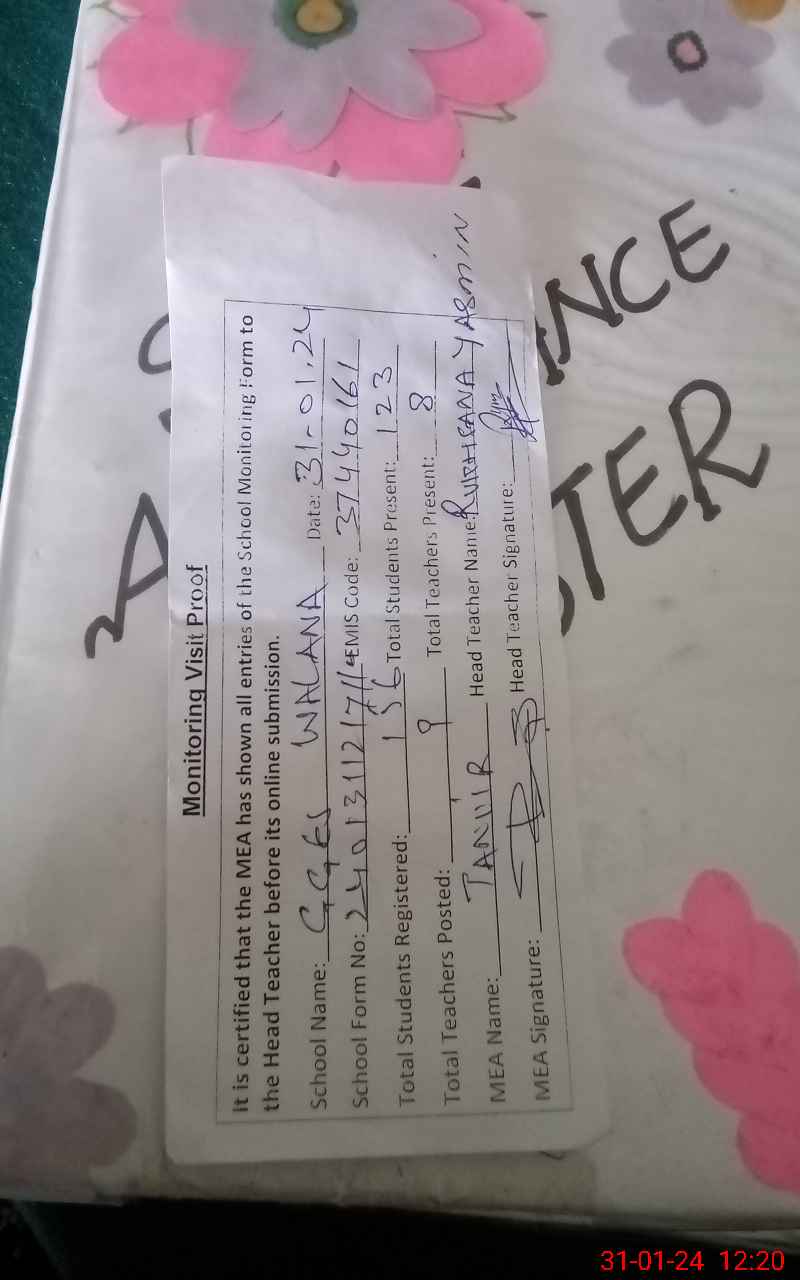 Monitoring Visit Proof
It is certified that the MEA has shown all entries of the School Monitoring Form to
the Head Teacher before its online submission.
School Name: GGES WALANA Date: 31-01.24
School Form No: EMIS Code: 37440161
Total Students Registered: 156 Total Students Present: 123
Total Teachers Posted: 9 Total Teachers Present: 8
MEA Name: TANVIR Head Teacher Name: YASMIN
MEA Signature: Head Teacher Signature:
31-01-24 12:20